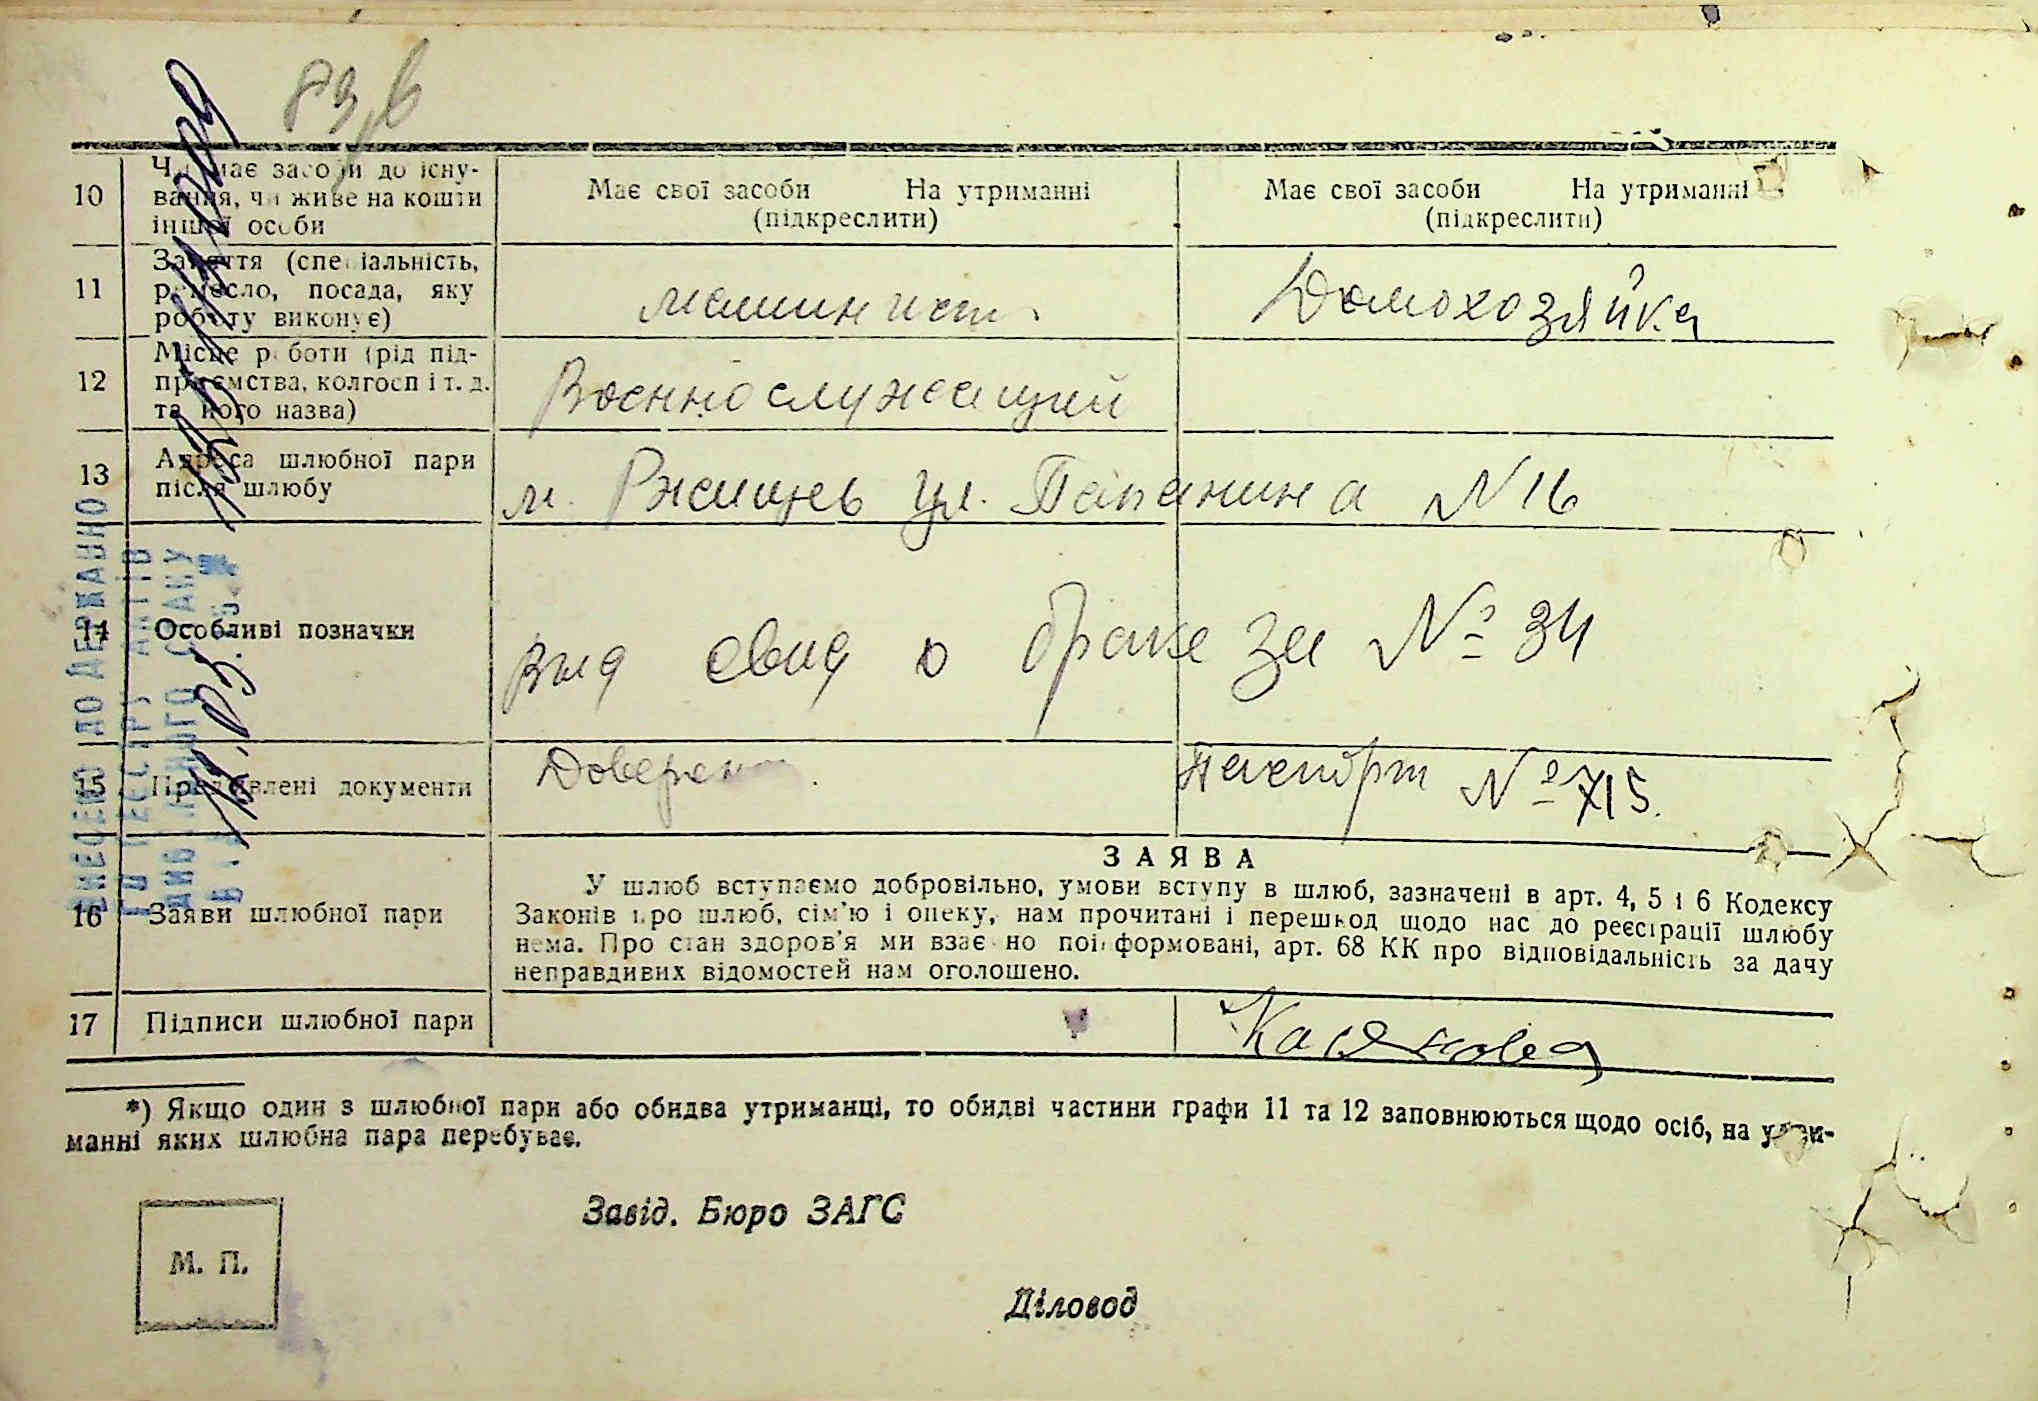 83,в
10 Чи має засоби до існу- Має свої засоби На утриманні Має свої засоби На утриманні
вання, чи живе на кошти (підкреслити) (підкреслити)
іншої особи
11 Заняття (спеціальність, машинист Домохозяйка
ремесло, посада, яку
роботу виконує)
12 Місце роботи (рід під- Военнослужащий
приємства, колгосп і т. д.
та його назва)
13 Адреса шлюбної пари м. Ржищев ул. Папанина N 16
після шлюбу
14 Особливі позначки выд свид о браке за № 34
15 Пред'явлені документи Доверен Паспорт № 715.
ЗАЯВА
16 Заяви шлюбної пари У шлюб вступаємо добровільно, умови вступу в шлюб, зазначені в арт. 4, 5 і 6 Кодексу
Законів про шлюб, сім'ю і опеку, нам прочитані і перешкод щодо нас до реєстрації шлюбу
нема. Про стан здоров'я ми взаємно поінформовані, арт. 68 КК про відповідальність за дачу
неправдивих відомостей нам оголошено.
17 Підписи шлюбної пари
*) Якщо один з шлюбної пари або обидва утриманці, то обидві частини графи 11 та 12 заповнюються щодо осіб, на утри-
манні яких шлюбна пара перебуває.
Завід. Бюро ЗАГС
М. П.
Діловод
ВНЕСЕНО ДО ДЕРЖАВНО
ГО РЕЄСТРУ АКТІВ
ЦИВІЛЬНОГО СТАНУ